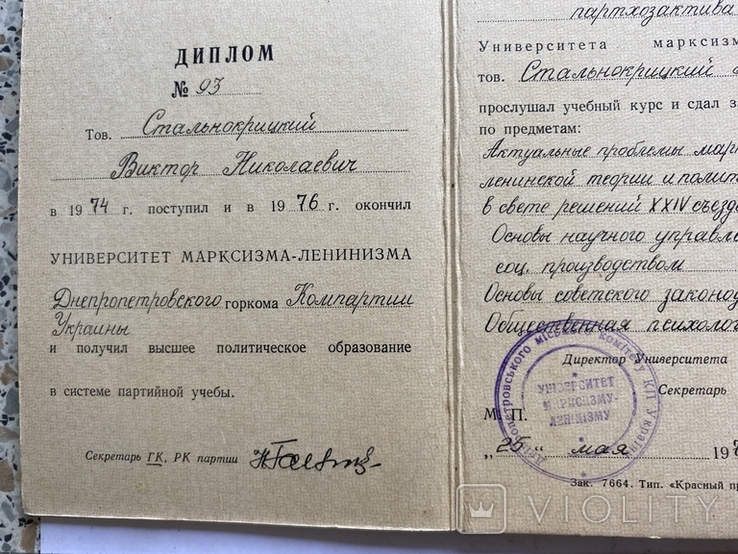 ДИПЛОМ
№ 93
Тов. Стальнокрицкий
Виктор Николаевич
в 1974 г. поступил и в 1976 г. окончил
УНИВЕРСИТЕТ МАРКСИЗМА-ЛЕНИНИЗМА
Днепропетровского горкома Компартии
Украины
и получил высшее политическое образование
в системе партийной учебы.
Секретарь ГК, РК партии
партхозактива
Университета марксизм
тов. Стальнокрицкий
прослушал учебный курс и сдал за
по предметам:
Актуальные проблемы марк
ленинской теории и полит
в свете решений XXIV съезд
Основы научного управле
соц. производством
Основы советского законод
Общественная психолог
Директор Университета
Секретарь
М. П.
Дніпропетровського міського комітету КП України
УНІВЕРСИТЕТ
МАРКСИЗМУ-
ЛЕНІНІЗМУ
„25" мая 197
Зак. 7664. Тип. «Красный пр
VIOLITY